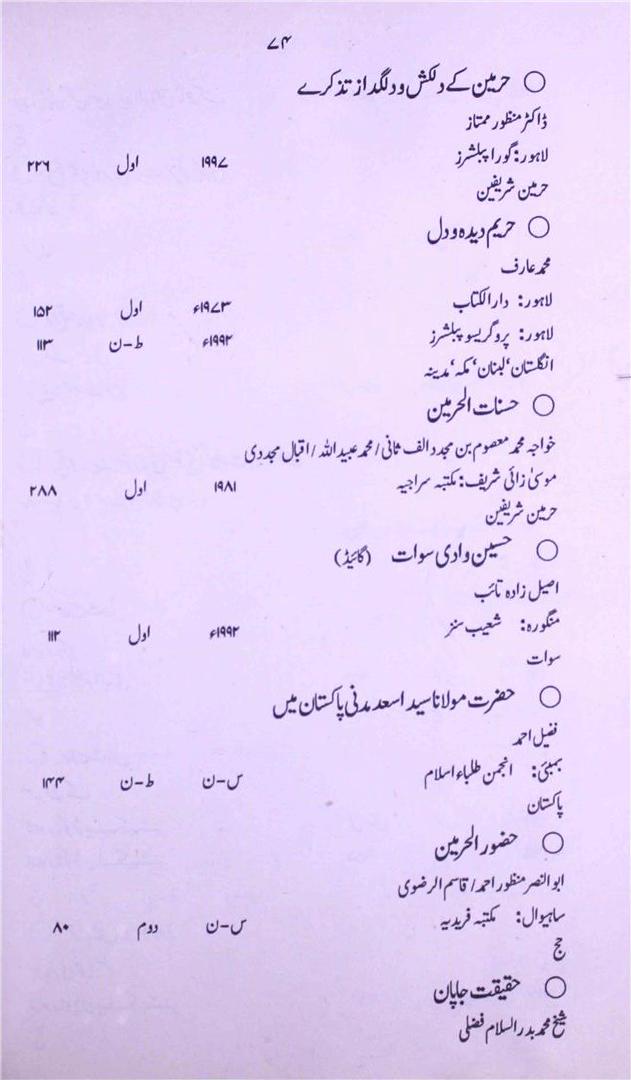 ۷۴
○ حرمین کے دلکش و دلگداز تذکرے
ڈاکٹر منظور ممتاز
لاہور: گورا پبلشرز ۱۹۹۷ اول ۲۲۶
حرمین شریفین
○ حریم دیدہ و دل
محمد عارف
لاہور: دارالکتاب ۱۹۷۳ء اول ۱۵۲
لاہور: پروگریسو پبلشرز ۱۹۹۲ء ط-ن ۱۱۳
انگلستان، لبنان، مکہ، مدینہ
○ حسنات الحرمین
خواجہ محمد معصوم بن مجدد الف ثانی/ محمد عبید اللہ / اقبال مجددی
موسیٰ زائی شریف: مکتبہ سراجیہ ۱۹۸۱ اول ۲۸۸
حرمین شریفین
○ حسین وادی سوات (گائیڈ)
اصیل زادہ تائب
منگورہ: شعیب سنز ۱۹۹۲ء اول ۱۱۲
سوات
○ حضرت مولانا سید اسعد مدنی پاکستان میں
فضیل احمد
بمبئی: انجمن طلباء اسلام س-ن ط-ن ۱۴۴
پاکستان
○ حضور الحرمین
ابوالنصر منظور احمد/ قاسم الرضوی
ساہیوال: مکتبہ فریدیہ س-ن دوم ۸۰
حج
○ حقیقت جاپان
شیخ محمد بدر السلام فضلی